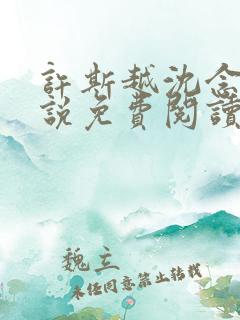 許斯越沈念
說免費閱讀
魏立
未經同意禁止轉載